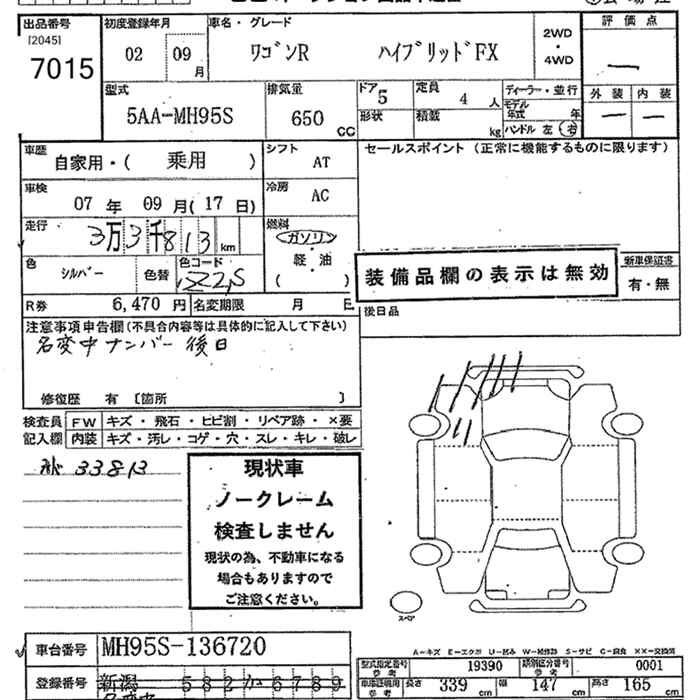 出品番号 初度登録年月 車名・グレード 2WD・4WD 評価点
[2045]
7015 02 09月 ワゴンR ハイブリッドFX ー
型式 排気量 ドア 5 定員 4人 ディーラー・並行 外装 内装
5AA-MH95S 650 CC 形状 積載 kg モデル年式 年 ー ー
ハンドル 左 右
車歴 自家用・( 乗用 ) シフト AT セールスポイント (正常に機能するものに限ります)
車検 07年 09月(17日) 冷房 AC
走行 3万3千813 km 燃料 ガソリン・軽・油 ( )
色 シルバー 色替 色コード Z2S
装備品欄の表示は無効 新車保証書 有・無
R券 6,470円 名変期限 月 日 後日品
注意事項申告欄(不具合内容等は具体的に記入して下さい)
名変中ナンバー後日
修復歴 有 [箇所 ]
検査員 FW キズ・飛石・ヒビ割・リペア跡・×要
記入欄 内装 キズ・汚レ・コゲ・穴・スレ・キレ・破レ
33813
現状車
ノークレーム
検査しません
現状の為、不動車になる
場合もありますので
ご注意ください。
スペア
車台番号 MH95S-136720
A-キズ E-エクボ U-凹み W-補修跡 S-サビ C-腐食 XX-交換済
型式指定番号 参考 19390 類別区分番号 参考 0001
登録番号 新潟 582 か 6789
名変中
車庫証明用 参考 長さ 339 cm 幅 147 cm 高さ 165 cm